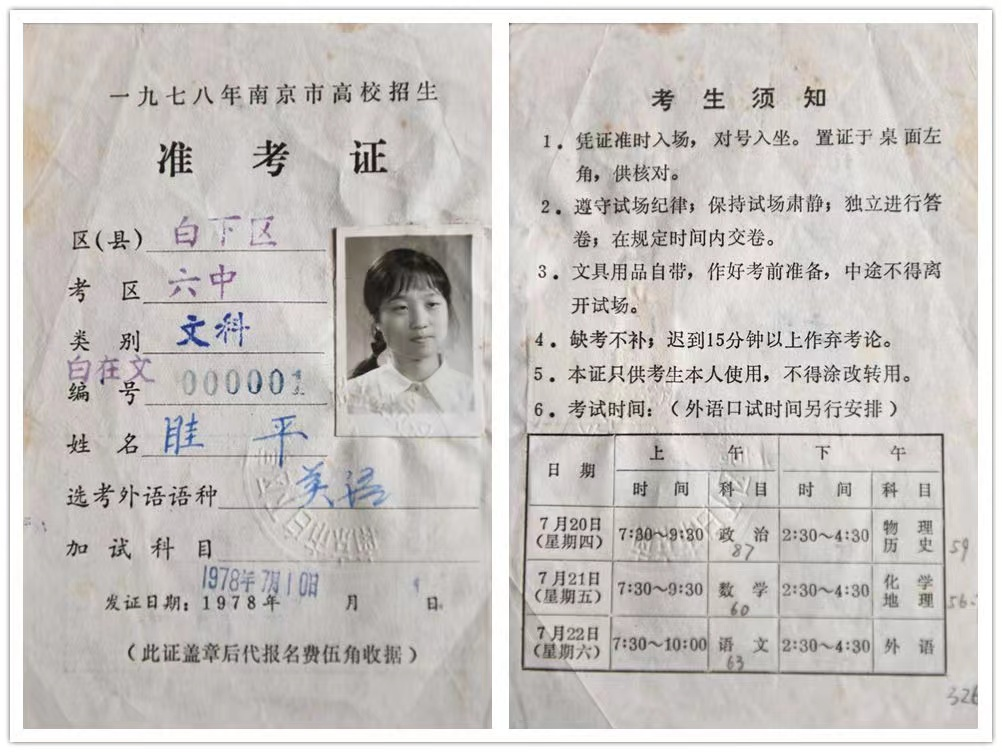 一九七八年南京市高校招生
准考证
区(县) 白下区
考区 六中
类别 文科
白在文
编号 000001
姓名 眭平
选考外语语种 英语
加试科目
1978年7月10日
发证日期：1978年 月 日
（此证盖章后代报名费伍角收据）
考生须知
1．凭证准时入场，对号入坐。置证于桌面左
角，供核对。
2．遵守试场纪律；保持试场肃静；独立进行答
卷；在规定时间内交卷。
3．文具用品自带，作好考前准备，中途不得离
开试场。
4．缺考不补；迟到15分钟以上作弃考论。
5．本证只供考生本人使用，不得涂改转用。
6．考试时间：（外语口试时间另行安排）
日期 上午 下午
时间 科目 时间 科目
7月20日 7:30～9:30 政治 2:30～4:30 物理
(星期四) 87 历史 59
7月21日 7:30～9:30 数学 2:30～4:30 化学
(星期五) 60 地理 56
7月22日 7:30～10:00 语文 2:30～4:30 外语
(星期六) 63
326